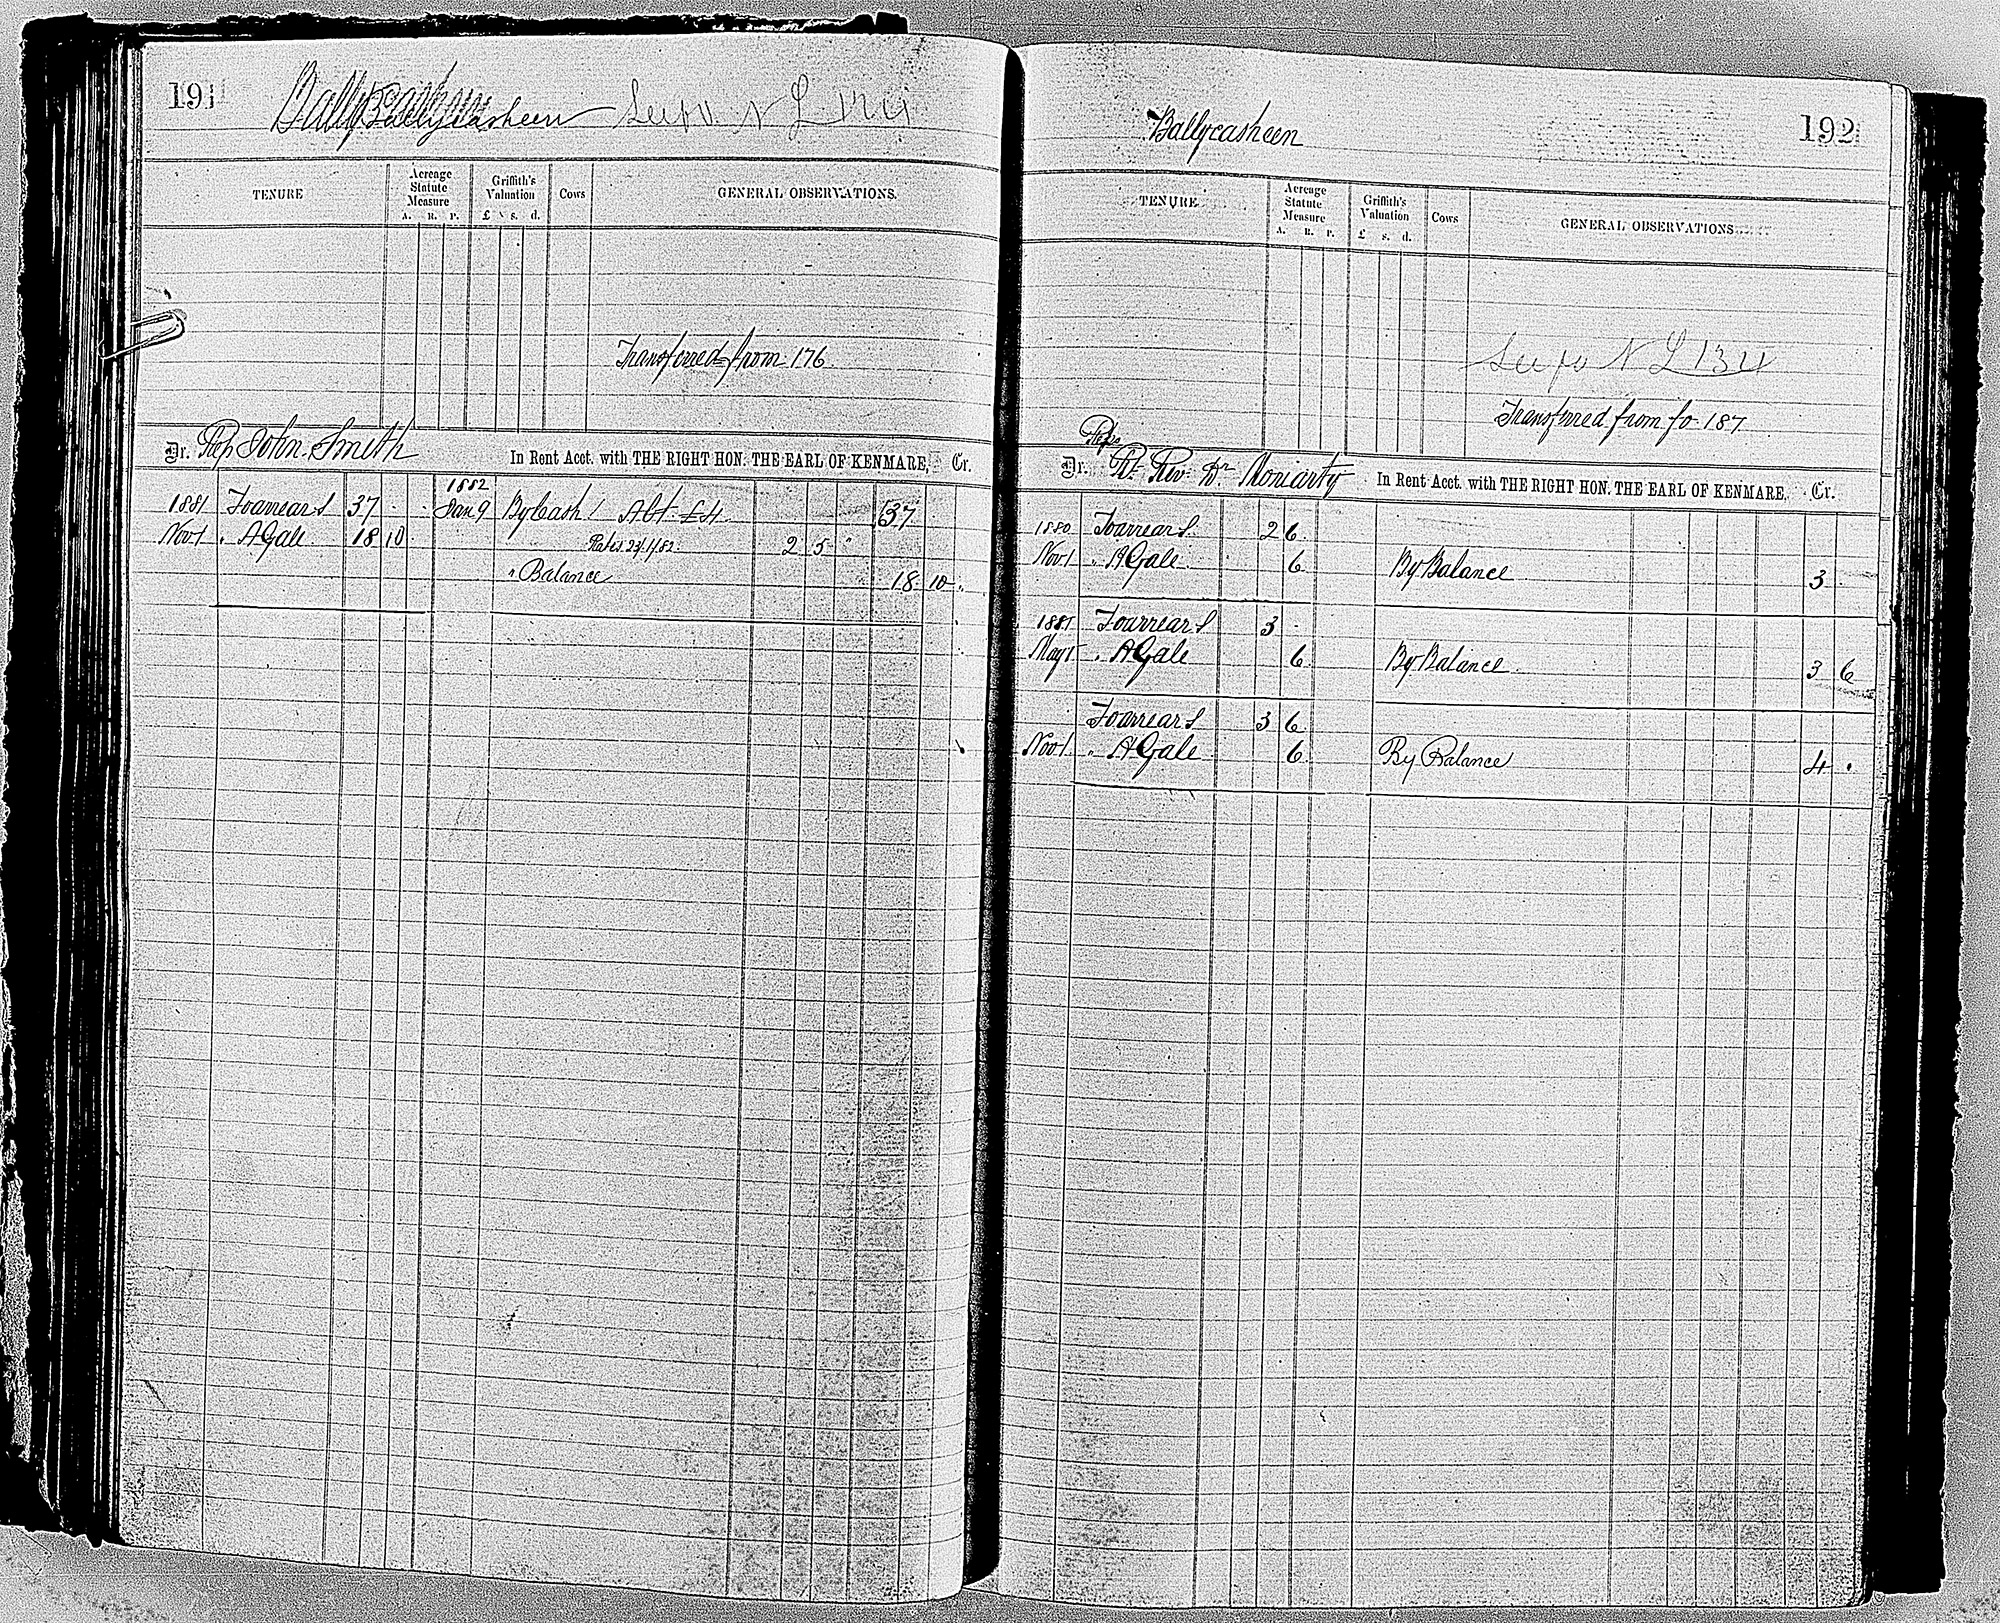 191 Ballycasheen
TENURE Acreage Statute Measure A. R. P. Griffith's Valuation £ s. d. Cows GENERAL OBSERVATIONS.
Transferred from 176
Dr. Rep John Smith In Rent Acct. with THE RIGHT HON. THE EARL OF KENMARE, Cr.
1882
1881 To arrears 37 . . Jan 9 By Cash Abt £4 37
Nov 1 " A Gale 18 10 . Rates 24/1/82 2 5 "
" Balance 18 10 .
Ballycasheen 192
TENURE Acreage Statute Measure A. R. P. Griffith's Valuation £ s. d. Cows GENERAL OBSERVATIONS
See fo N L 134
Transferred from fo 187
Reps
Dr. Rt. Rev Dr Moriarty In Rent Acct. with THE RIGHT HON. THE EARL OF KENMARE, Cr.
1880 To arrears 2 6
Nov 1 " A Gale 6 By Balance 3 .
1881 To arrears 3 .
May 1 " A Gale 6 By Balance 3 6
To arrears 3 6
Nov 1 " A Gale 6 By Balance 4 .